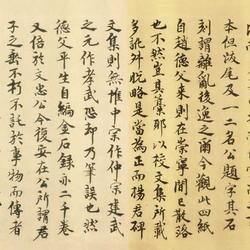 本但跋尾及一二名公題字其石
刻謂離亂後逸之爾今觀此四紙
自趙德父來則在崇寧間已散落
也不然豈其藁耶以校文集所載
多訛舛脫略是當為正而楊君碑
文集則無惟中宗作仲宗建武
之元作孝武恐却乃筆誤也然
德父平生自編金石錄亦二千卷
又倍於文忠公今復安在公所謂君
子之垂不朽不託於事物而傳者